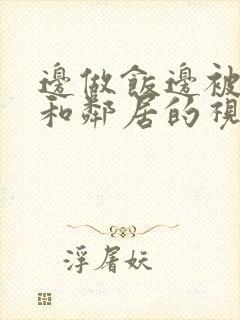 邊做飯邊被
和鄰居的視
浮屠妖